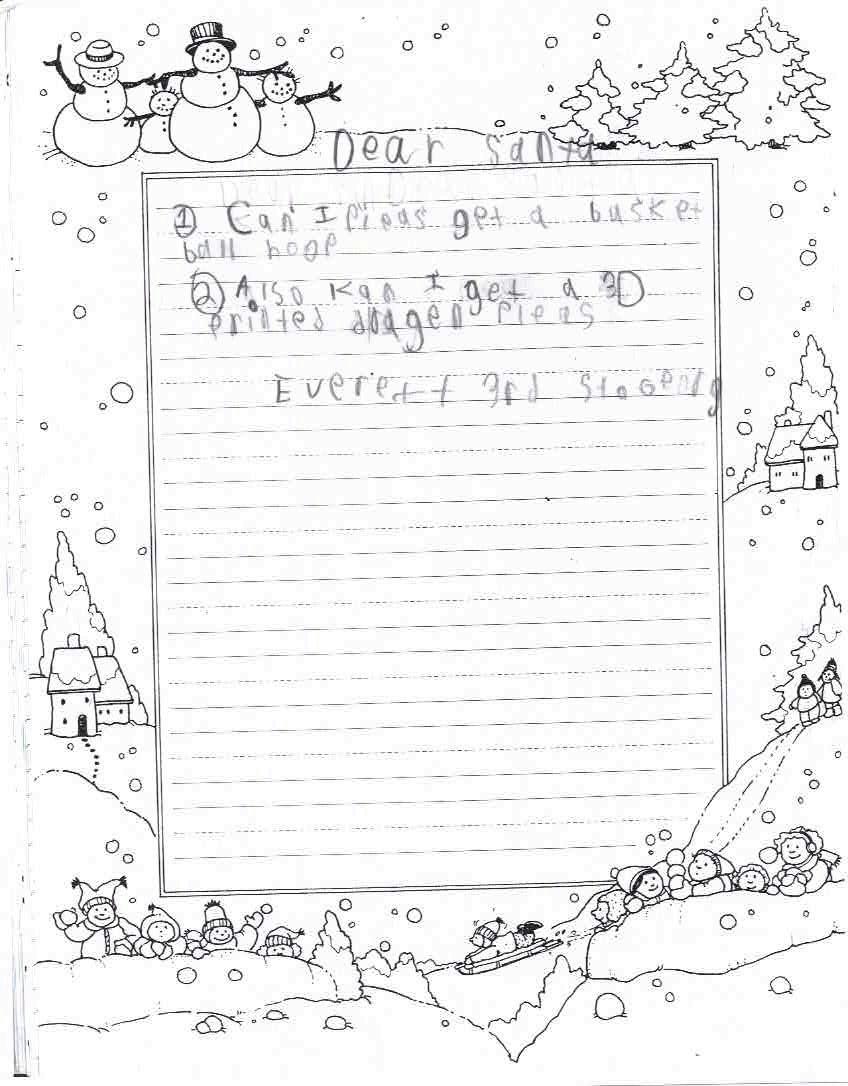 Dear Santa
① Can I pleas get a basket
ball hoop
② Also Kan I get a 3D
printed dragen Pleas
Everett 3rd St. George